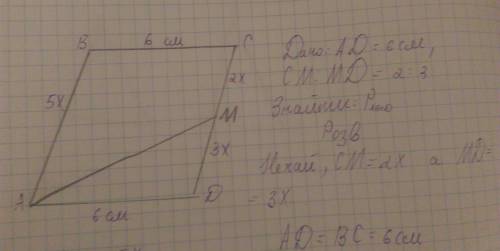 B 6 см C
5x
2x
M
3x
A D
6 см
Дано: AD = 6см,
CM:MD = 2:3
Знайти: P
Розв
Нехай, CM = 2x а MD =
= 3x
AD = BC = 6см